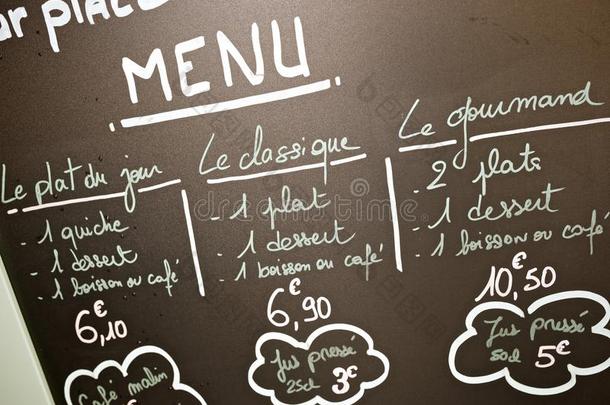 MENU
Le plat du jour
- 1 quiche
- 1 dessert
- 1 boisson ou café
6€,10
Café malin
Le classique
- 1 plat
- 1 dessert
- 1 boisson ou café
6€,90
Jus pressé
25cl 3€
Le gourmand
- 2 plats
- 1 dessert
- 1 boisson ou café
10€,50
Jus pressé
50cl 5€
dreamstime